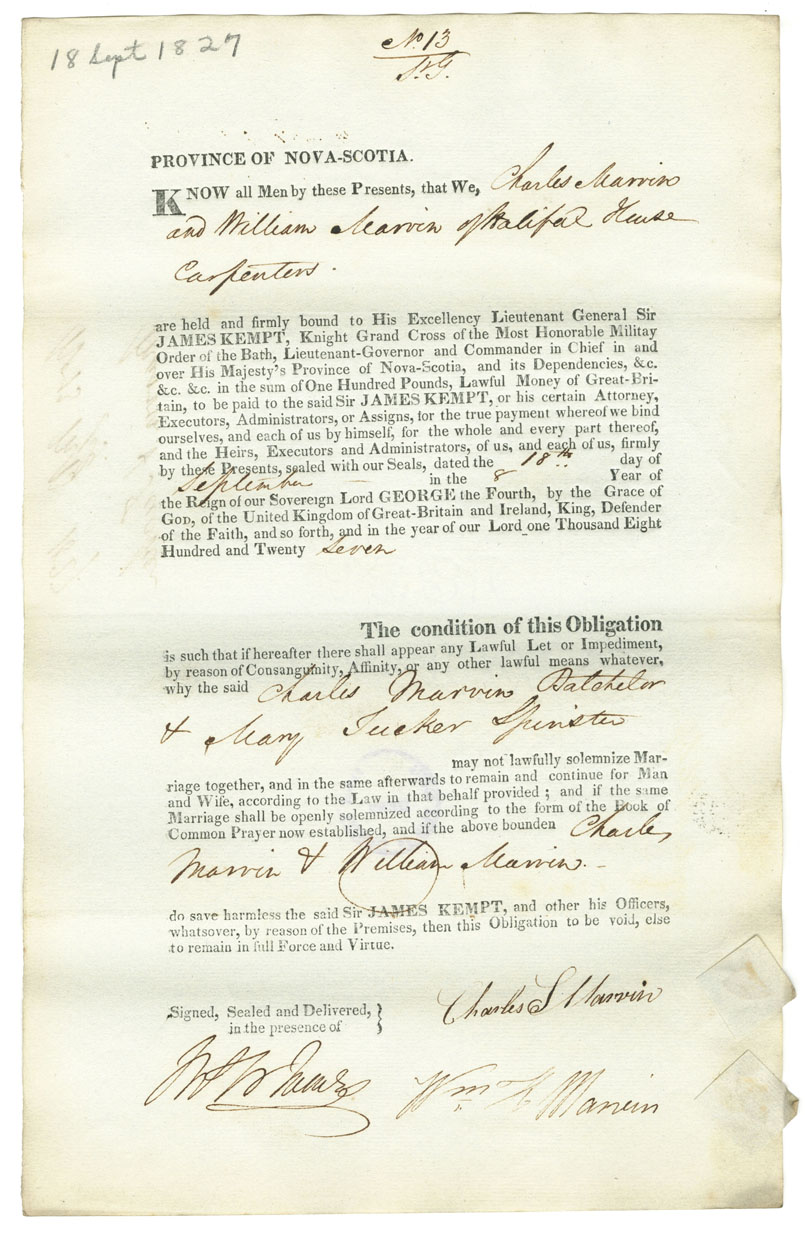 18 Sept 1827
No 13
St G.
PROVINCE OF NOVA-SCOTIA.
KNOW all Men by these Presents, that We, Charles Marvin
and William Marvin of Halifax House
Carpenters.
are held and firmly bound to His Excellency Lieutenant General Sir
JAMES KEMPT, Knight Grand Cross of the Most Honorable Militay
Order of the Bath, Lieutenant-Governor and Commander in Chief in and
over His Majesty's Province of Nova-Scotia, and its Dependencies, &c.
&c. &c. in the sum of One Hundred Pounds, Lawful Money of Great-Bri-
tain, to be paid to the said Sir JAMES KEMPT, or his certain Attorney,
Executors, Administrators, or Assigns, for the true payment whereof we bind
ourselves, and each of us by himself, for the whole and every part thereof,
and the Heirs, Executors and Administrators, of us, and each of us, firmly
by these Presents, sealed with our Seals, dated the 18th day of
September in the 8 Year of
the Reign of our Sovereign Lord GEORGE the Fourth, by the Grace of
GOD, of the United Kingdom of Great-Britain and Ireland, King, Defender
of the Faith, and so forth, and in the year of our Lord one Thousand Eight
Hundred and Twenty Seven
The condition of this Obligation
is such that if hereafter there shall appear any Lawful Let or Impediment,
by reason of Consanguinity, Affinity, or any other lawful means whatever,
why the said Charles Marvin Batchelor
& Mary Tucker Spinster
may not lawfully solemnize Mar-
riage together, and in the same afterwards to remain and continue for Man
and Wife, according to the Law in that behalf provided ; and if the same
Marriage shall be openly solemnized according to the form of the Book of
Common Prayer now established, and if the above bounden Charles
Marvin & William Marvin.
do save harmless the said Sir JAMES KEMPT, and other his Officers,
whatsover, by reason of the Premises, then this Obligation to be void, else
to remain in full Force and Virtue.
Signed, Sealed and Delivered,
in the presence of
Charles S Marvin
Wm A Marvin